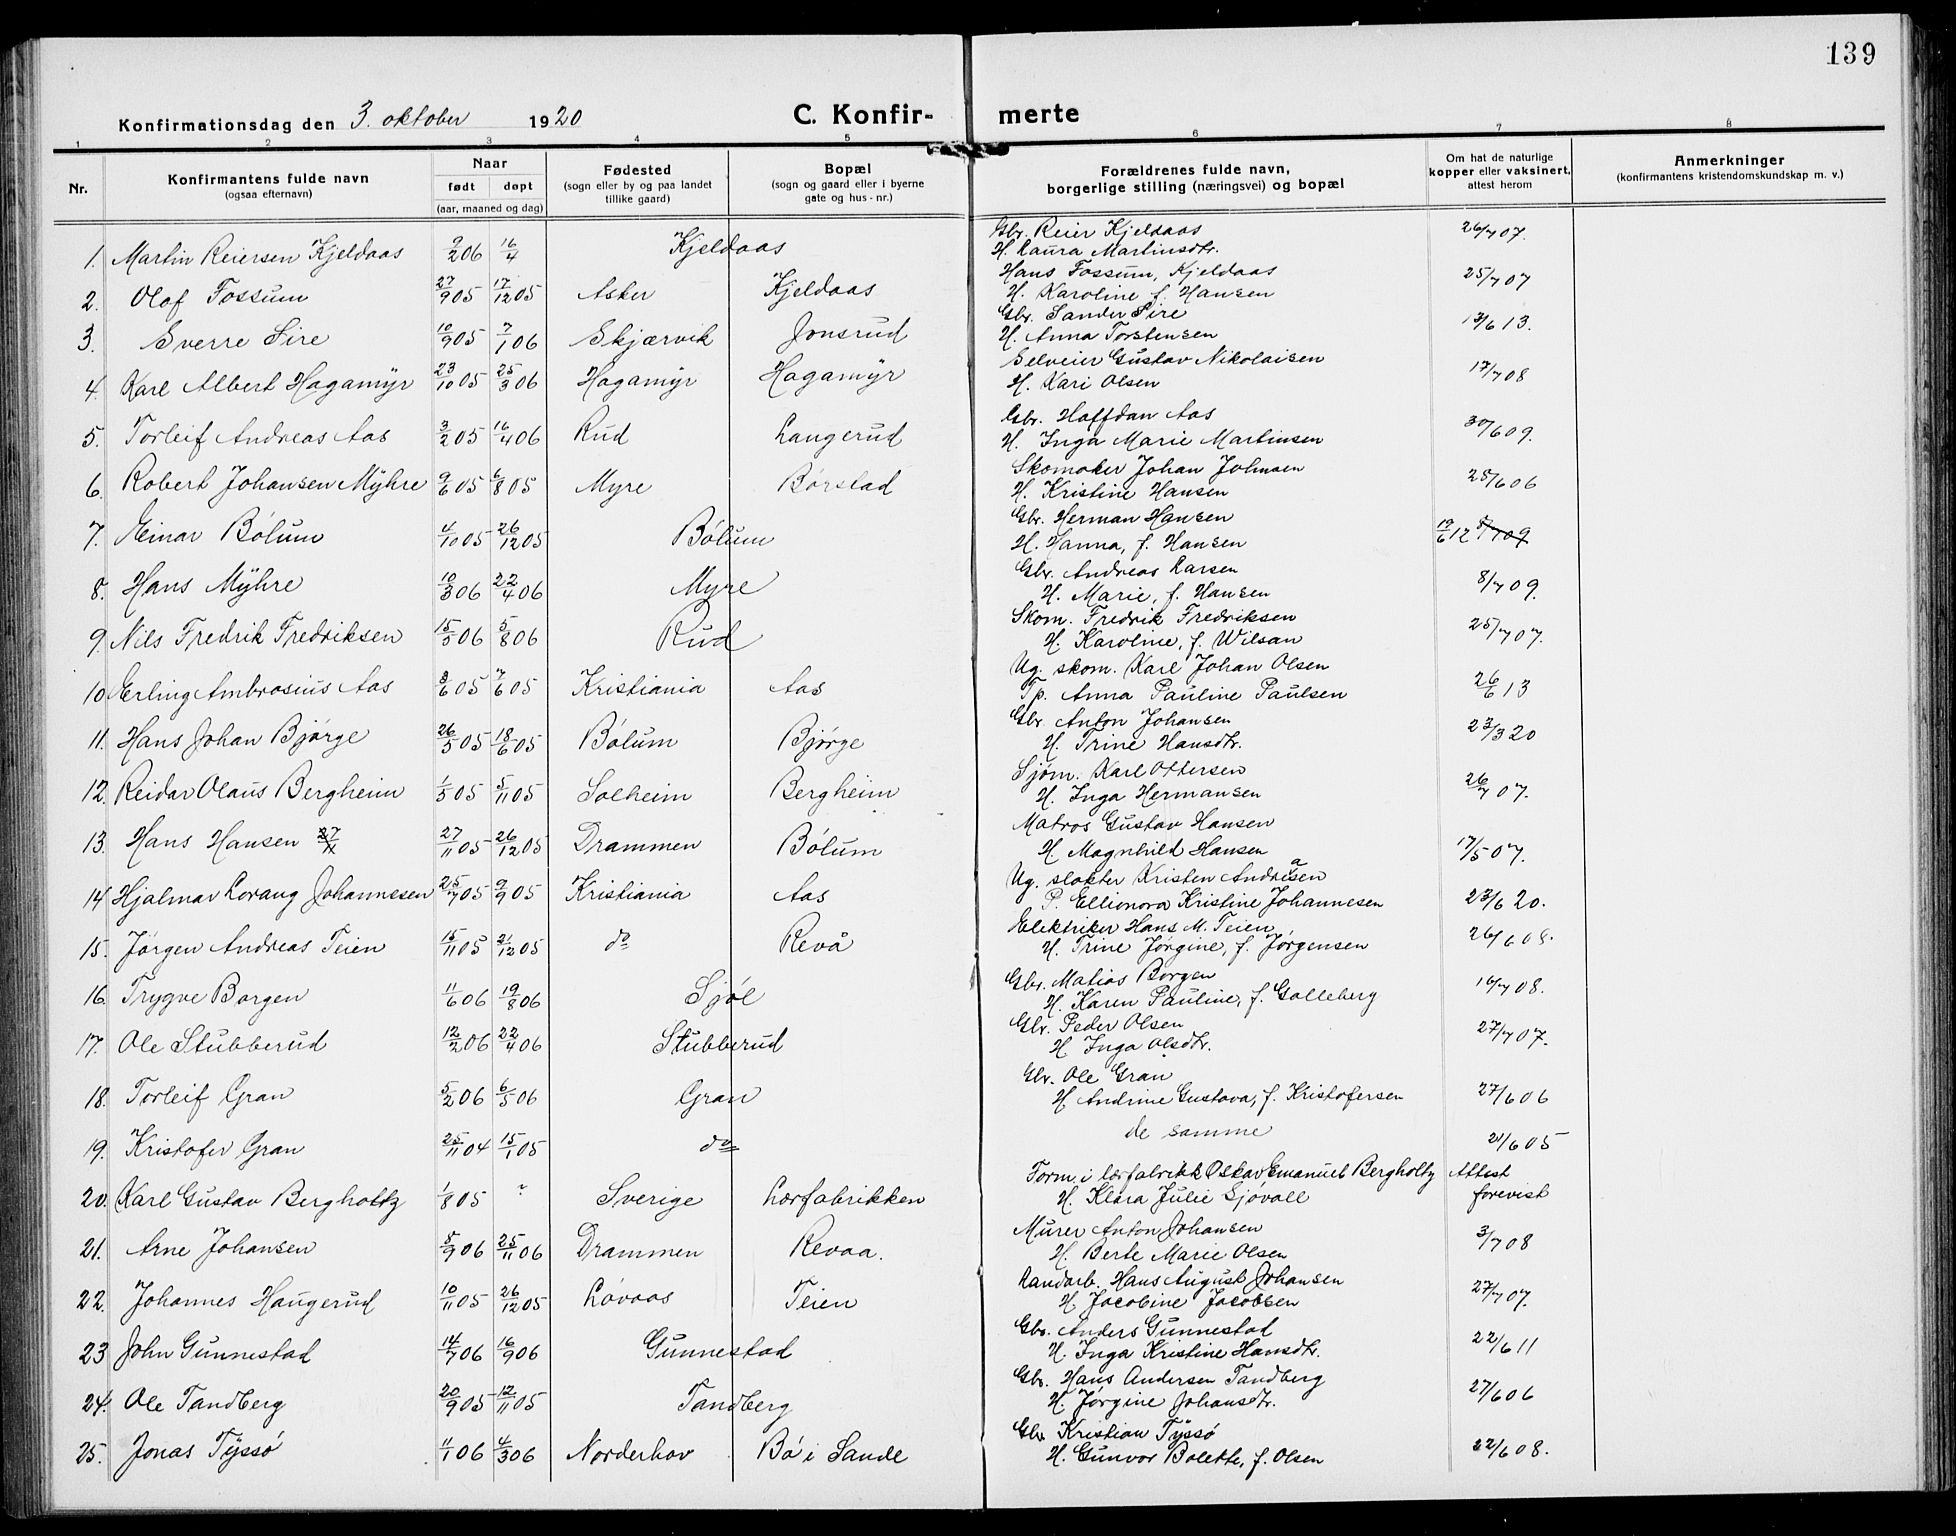 139
Konfirmationsdag den 3. oktober 1920
C. Konfirmerte
1 2 3 4 5 6 7 8
Nr. | Konfirmantens fulde navn (ogsaa efternavn) | Naar født døpt (aar, maaned og dag) | Fødested (sogn eller by og paa landet tillike gaard) | Bopæl (sogn og gaard eller i byerne gate og hus-nr.) | Forældrenes fulde navn, borgerlige stilling (næringsvei) og bopæl | Om hat de naturlige kopper eller vaksinert, attest herom | Anmerkninger (konfirmantens kristendomskundskap m. v.)
1. Martin Reiersen Kjeldaas 9/2 06 16/4 Kjeldaas Gbr. Reier Kjeldaas 26/7 07.
H. Laura Martinsdtr.
2. Olaf Fossum 27/9 05 17/12 05 Asker Kjeldaas Hans Fossum, Kjeldaas 25/7 07
H. Karoline f. Hansen
3. Sverre Sire 10/9 05 7/1 06 Skjærvik Jonsrud Gbr. Sander Sire 13/6 13.
H. Anna Torstensen
4. Karl Albert Hagamyr 23/10 05 25/3 06 Hagamyr Hagamyr Selveier Gustav Nikolaisen 17/7 08
H. Kari Olsen
5. Torleif Andreas Aas 3/2 05 16/4 06 Rud Langerud Gbr. Halfdan Aas 30/6 09.
H. Inga Marie Martinsen
6. Robert Johansen Myhre 9/6 05 6/8 05 Myre Børstad Skomaker Johan Johnsen 25/6 06
H. Kristine Hansen
7. Einar Bølum 4/10 05 26/12 05 Bølum Gbr. Herman Hansen 19/6 12
H. Hanna, f. Hansen
8. Hans Myhre 10/3 06 22/4 06 Myre Gbr. Andreas Larsen 8/7 09.
H. Marie, f. Hansen
9. Nils Fredrik Fredriksen 15/5 06 5/8 06 Rud Skom. Fredrik Fredriksen 25/7 07.
H. Karoline, f. Wilsan
10. Erling Ambrosius Aas 3/6 05 7/6 05 Kristiania Aas Ug. skom. Karl Johan Olsen 26/6 13
Tp. Anna Pauline Paulsen
11. Hans Johan Bjørge 26/5 05 18/6 05 Bølum Bjørge Gbr. Anton Johansen 23/3 20
H. Trine Hansdtr.
12. Reidar Olaus Bergheim 1/5 05 5/11 05 Solheim Bergheim Sjøm. Karl Ottersen 26/7 07.
H. Inga Hermansen
13. Hans Hansen 27/11 05 26/12 05 Drammen Bølum Matros Gustav Hansen 17/5 07.
H. Magnhild Hansen
14 Hjalmar Lorang Johannesen 25/7 05 9/9 05 Kristiania Aas Ug. slakter Kristen Andreasen 23/6 20.
P. Ellionora Kristine Johannesen
15. Jørgen Andreas Teien 15/11 05 21/12 05 do Revå Elektriker Hans M. Teien 26/6 08.
H. Trine Jørgine, f. Jørgensen
16. Trygve Borgen 11/6 06 19/8 06 Sjøl Gbr. Matias Borgen 16/7 08.
H. Karen Pauline, f. Galleberg
17. Ole Stubberud 12/2 06 22/4 06 Stubberud Gbr. Peder Olsen 27/7 07.
H. Inga Olsdtr.
18. Torleif Gran 5/2 06 6/5 06 Gran Gbr. Ole Gran 27/6 06
H. Andrine Gustava, f. Kristofersen
19. Kristofer Gran 25/11 04 15/1 05 do de samme 21/6 05
20. Karl Gustav Bergholtz 1/8 05 ? Sverige Lærfabrikken Form. i lærfabrikk Oskar Emanuel Bergholtz Attest
H. Klara Julie Sjøvall forevist
21. Arne Johansen 5/9 06 25/11 06 Drammen Revaa. Murer Anton Johansen 3/7 08
H. Berte Marie Olsen
22. Johannes Haugerud 10/11 05 26/12 05 Løvaas Teien Landarb. Hans August Johansen 27/7 07.
H. Jacobine Jacobsen
23 John Gunnestad 14/7 06 16/9 06 Gunnestad Gbr. Anders Gunnestad 22/6 11
H. Inga Kristine Hansdtr.
24. Ole Tandberg 20/9 05 12/11 05 Tandberg Gbr. Hans Andersen Tandberg 27/6 06
H. Jørgine Johansdtr.
25. Jonas Tyssø 11/1 06 4/3 06 Norderhov Bø i Sande Gbr Kristian Tyssø 22/6 08.
H. Gunvor Bolette, f. Olsen